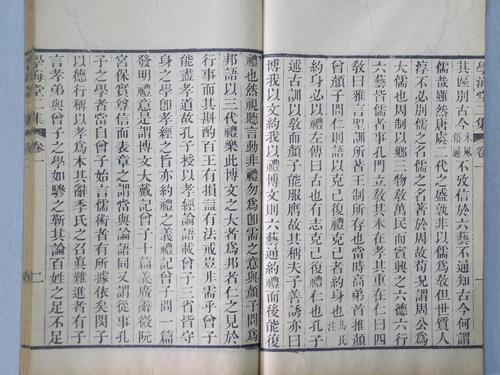 學海堂二集 卷一 一
其區別古今本風俗通不攷信於六藝不通知古今何謂
儒哉雖然唐虞三代之盛孰非以儒爲敎但世質人
淳不必別儒之名儒之名著於周故荀況謂周公爲
大儒也周制以鄉三物敎萬民而賓興之六德六行
六藝皆儒者事孔門立敎其本在孝其重在仁曰四
敎曰雅言聖訓所首王制所存也當時高弟首推顏
曾顏子問仁則語以克己復禮克己者約身也馬氏注
約身必以禮傳曰古也有志克己復禮仁也孔子
述古訓以勖顏子能服膺故其稱夫子善誘亦曰
博我以文約我以禮博文則六藝通約禮而後能復
禮也然視聽言動非禮勿爲卽儒之意與顏子問爲
邦語以三代禮樂此博文之大者爲邦者仁之見於
行事而其斟酌百王有損益有法戒豈非儒乎曾子
能盡孝道故孔子授以孝經論語載曾子一省皆守
身之學卽孝經之旨亦約禮之義禮記曾子問一篇
發明禮意是謂博文大戴記曾子十篇義廣辭微阮
宮保實尊信而表章之謂當與論語同又謂從事孔
子之學者當自曾子始言儒術者有所據依矣閔子
以德行稱以孝爲本其辭季氏之召眞難進者有子
言孝弟與曾子之學如驂之靳其論百姓之足不足
學海堂二集 卷一 二